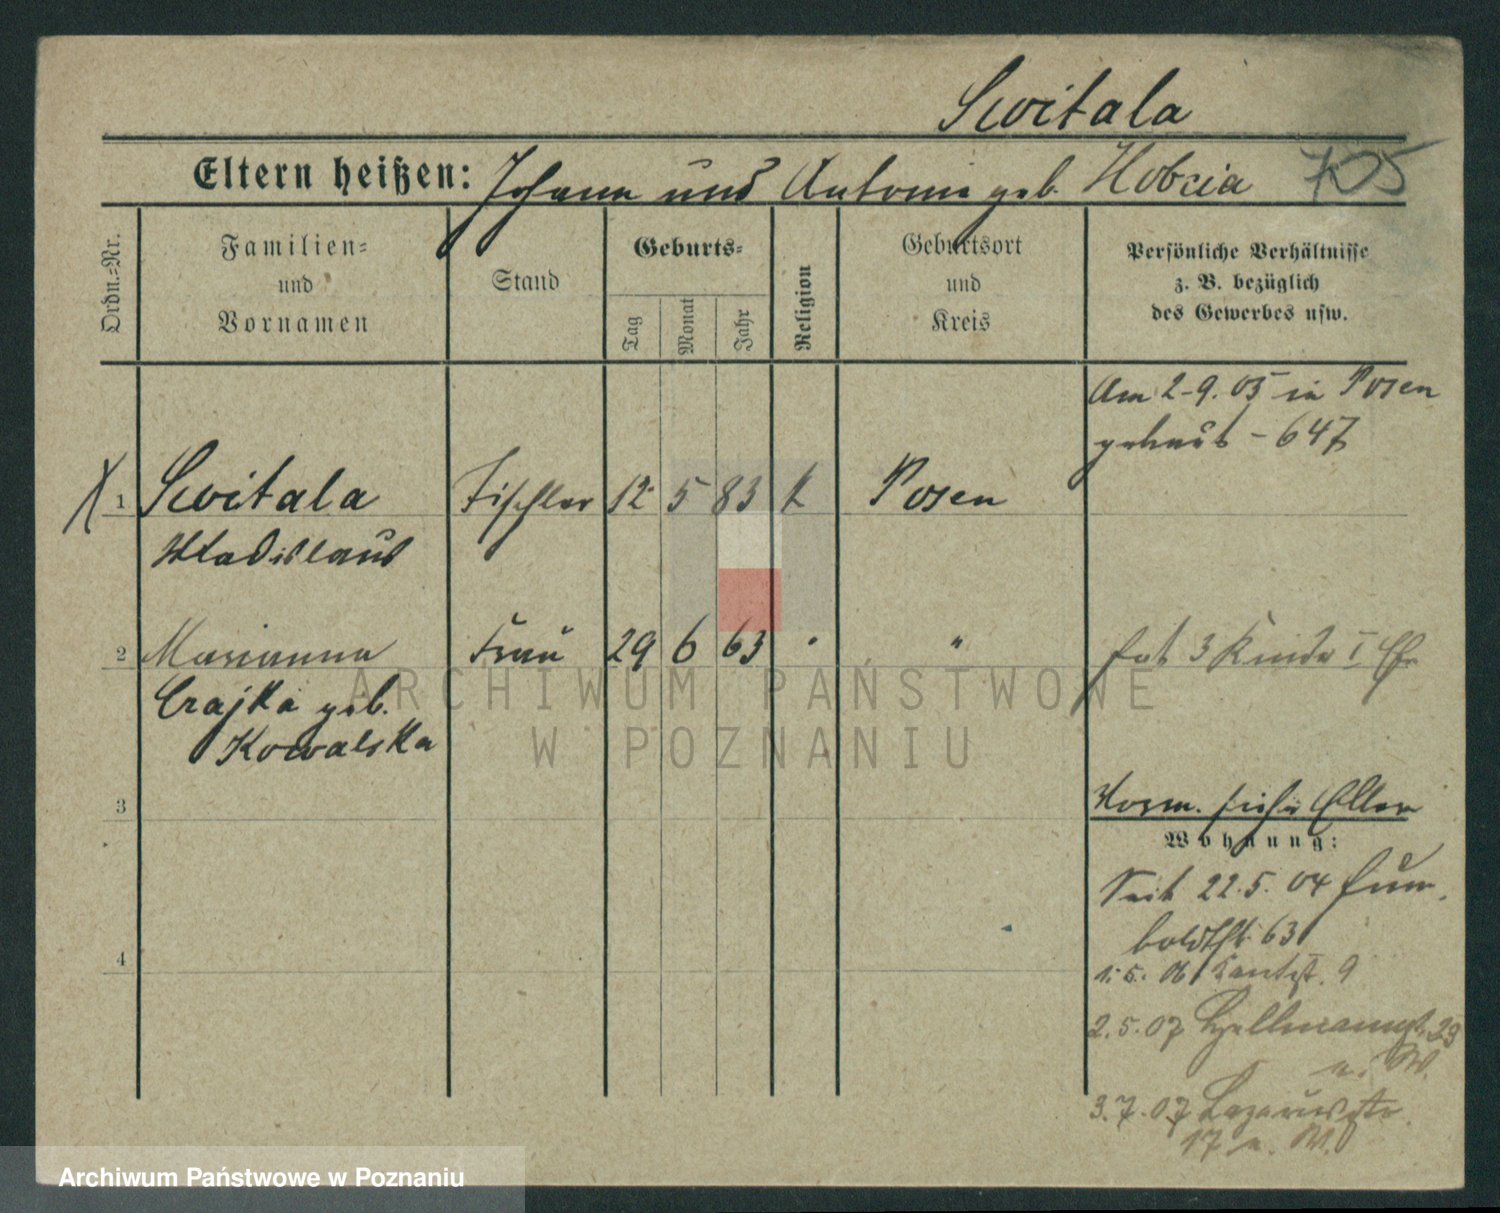 Switala
Eltern heißen: Johann und Antonie geb. Hobzia 705
Ordn.-Nr.
Familien- und Vornamen
Stand
Geburts-
Tag
Monat
Jahr
Religion
Geburtsort und Kreis
Persönliche Verhältnisse
z. B. bezüglich
des Gewerbes usw.
Am 2-9.05 in Posen
getraut - 647
1 Switala Tischler 12 5 83 k Posen
Wladislaus
2 Marianna Frau 29 6 63 " "
hat 3 Kinder I Ehe
Czajka geb.
Kowalska
3
Vorm. siehe Eltern
Wohnung:
Seit 22.5.04 Hum-
boldtstr. 63
4
1.5.06 Kantst. 9
2.5.07 23
n. W.
3.7.07 Lazarusstr.
17 n. W.
ARCHIWUM PAŃSTWOWE
W POZNANIU
Archiwum Państwowe w Poznaniu